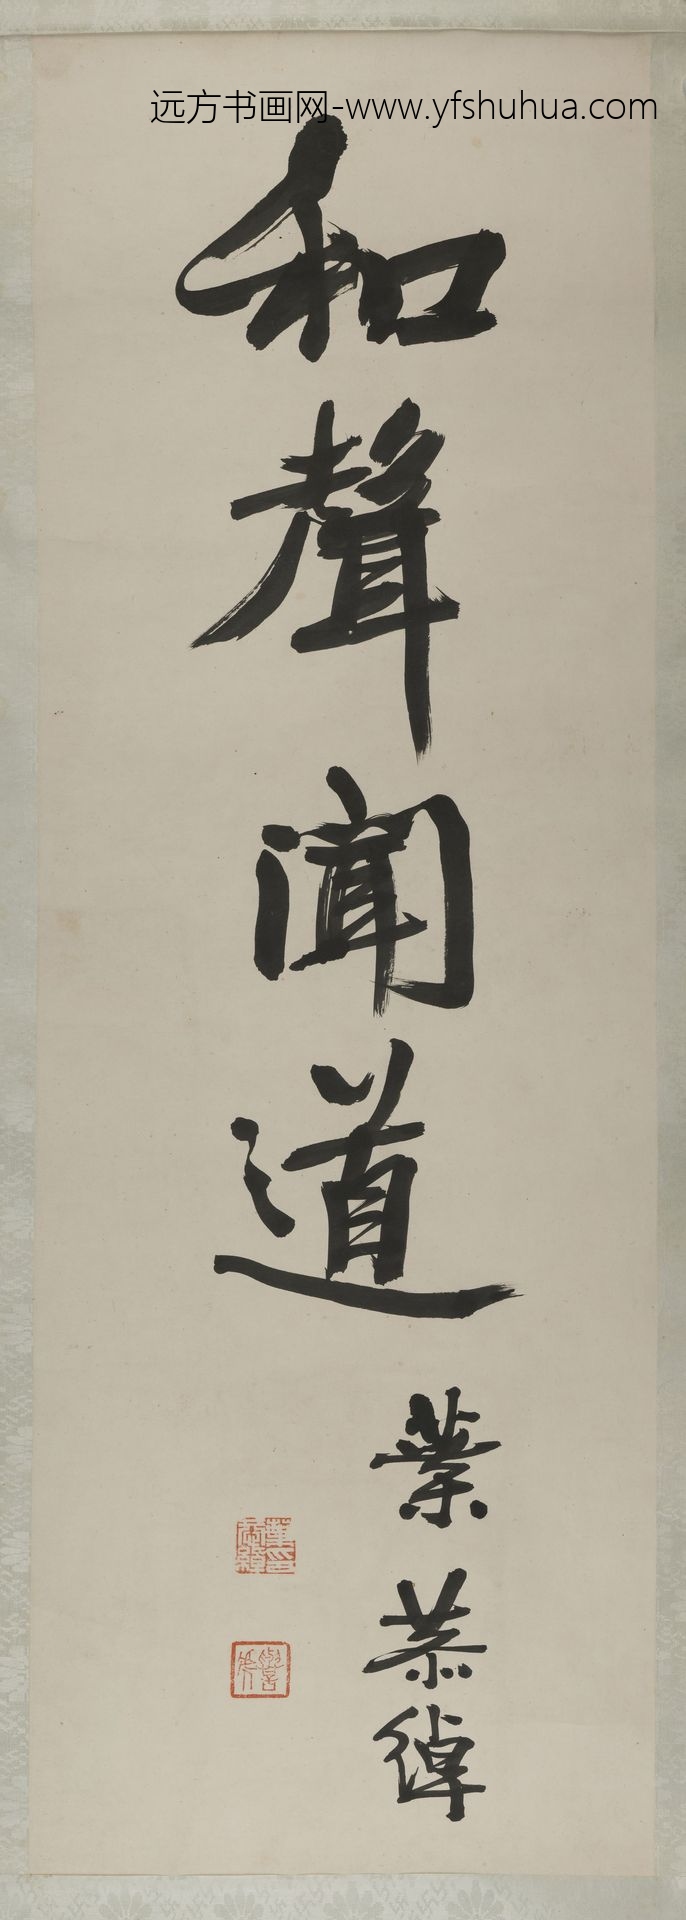 远方书画网-www.yfshuhua.com
和聲聞道
葉恭綽
葉恭綽印
譽虎